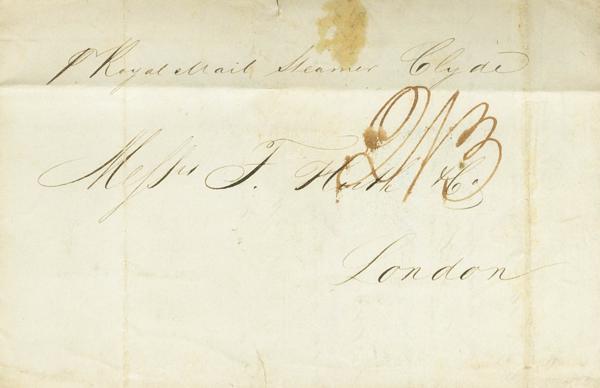 pr Royal Mail Steamer Clyde
2/3
Messrs F. Huth & Co.
London